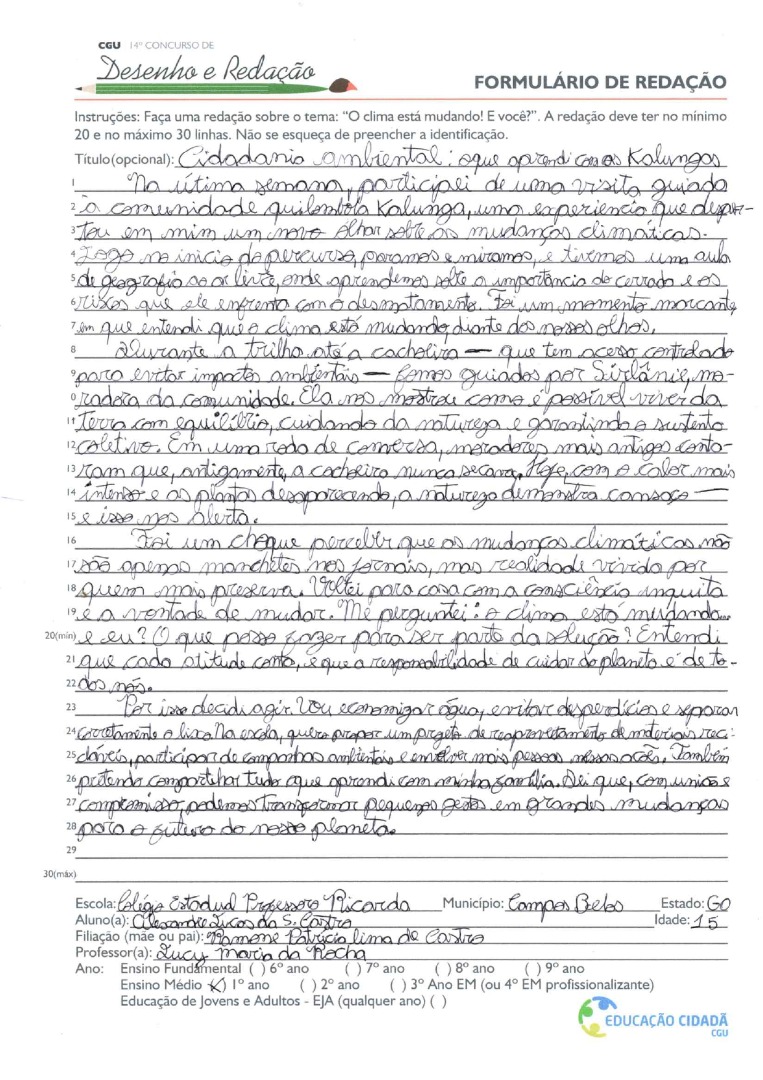 CGU 14º CONCURSO DE
Desenho e Redação
FORMULÁRIO DE REDAÇÃO
Instruções: Faça uma redação sobre o tema: "O clima está mudando! E você?". A redação deve ter no mínimo
20 e no máximo 30 linhas. Não se esqueça de preencher a identificação.
Título(opcional): Cidadania ambiental: oque aprendi com os Kalungas
1 Na útima semana, participei de uma visita guiada
2 à comunidade quilombola Kalunga, uma experiencia que desper-
3 tou em mim um novo olhar sobre as mudanças climáticas.
4 Logo no inicio do percurso, paramos e miramos, e tivemos uma aula
5 de geografia ao ar livre, onde aprendemos sobre a importância do cerrado e os
6 riscos que ele enfrenta com o desmatamento. Foi um momento marcante,
7 em que entendi que o clima está mudando diante dos nossos olhos.
8 Durante a trilha até a cachoeira — que tem acesso controlado
9 para evitar impactos ambientais — fomos guiados por Sirlânie, mo-
0 radora da comunidade. Ela nos mostrou como é possível viver da
11 terra com equilíbrio, cuidando da natureza e garantindo o sustento
12 coletivo. Em uma roda de conversa, moradores mais antigos conta-
13 ram que, antigamente, a cachoeira nunca secava. Hoje, com o calor mais
14 intenso e as plantas desaparecendo, a natureza demonstra cansaço —
15 e isso nos alerta.
16 Foi um choque perceber que as mudanças climáticas não
17 são apenas manchetes nos jornais, mas realidade vivida por
18 quem mais preserva. Voltei para casa com a consciência inquita
19 e a vontade de mudar. Me perguntei: o clima está mudando...
20(mín) e eu? O que posso fazer para ser parte da solução? Entendi
21 que cada atitude conta, e que a responsabilidade de cuidar do planeta é de to-
22 dos nós.
23 Por isso decidi agir. Vou economizar água, evitar desperdícios e separar
24 corretamente o lixo. Na escola, quero propor um projeto de reaproveitamento de materiais reci-
25 cláveis, participar de campanhas ambientais e envolver mais pessoas nessas ações. Também
26 pretendo compartilhar tudo oque aprendi com minha família. Sei que, com união e
27 compromisso, podemos transformar pequenos gestos em grandes mudanças
28 para o futuro do nosso planeta.
29
30(máx)
Escola: Colégio Estadual Professora Ricarda Município: Campos Belos Estado: GO
Aluno(a): Alexandre Lucas da S. Castro Idade: 15
Filiação (mãe ou pai): Ramone Patrícia lima de Castro
Professor(a): Lucy maria da Rocha
Ano: Ensino Fundamental ( ) 6º ano ( ) 7º ano ( ) 8º ano ( ) 9º ano
Ensino Médio (X) 1º ano ( ) 2º ano ( ) 3º Ano EM (ou 4º EM profissionalizante)
Educação de Jovens e Adultos - EJA (qualquer ano) ( )
EDUCAÇÃO CIDADÃ
CGU